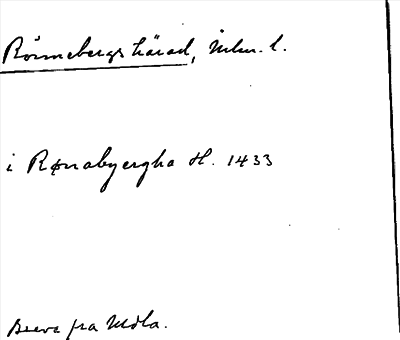 Rönnebergs härad, Mlm. l.
i Rønabyergha H. 1433
Breve fra Mdla.